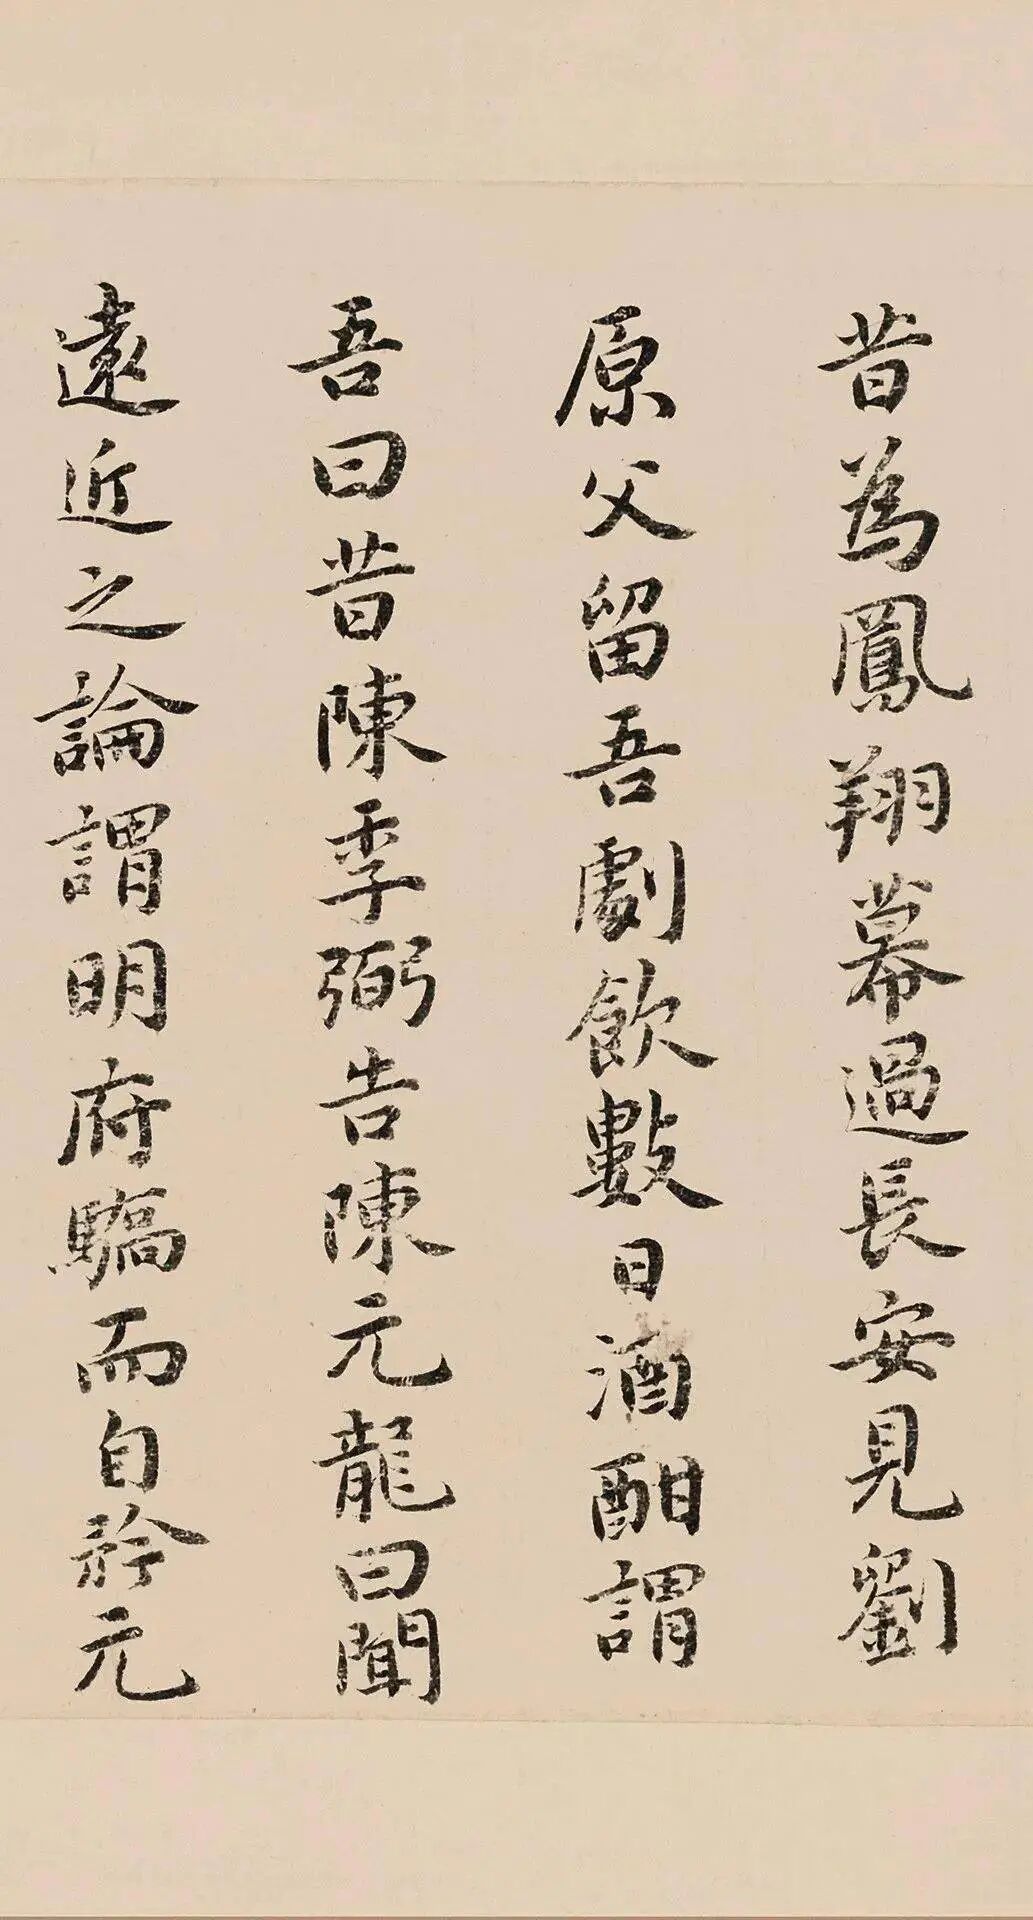 昔為鳳翔幕過長安見劉
原父留吾劇飲數日酒酣謂
吾曰昔陳季弼告陳元龍曰聞
遠近之論謂明府驕而自矜元